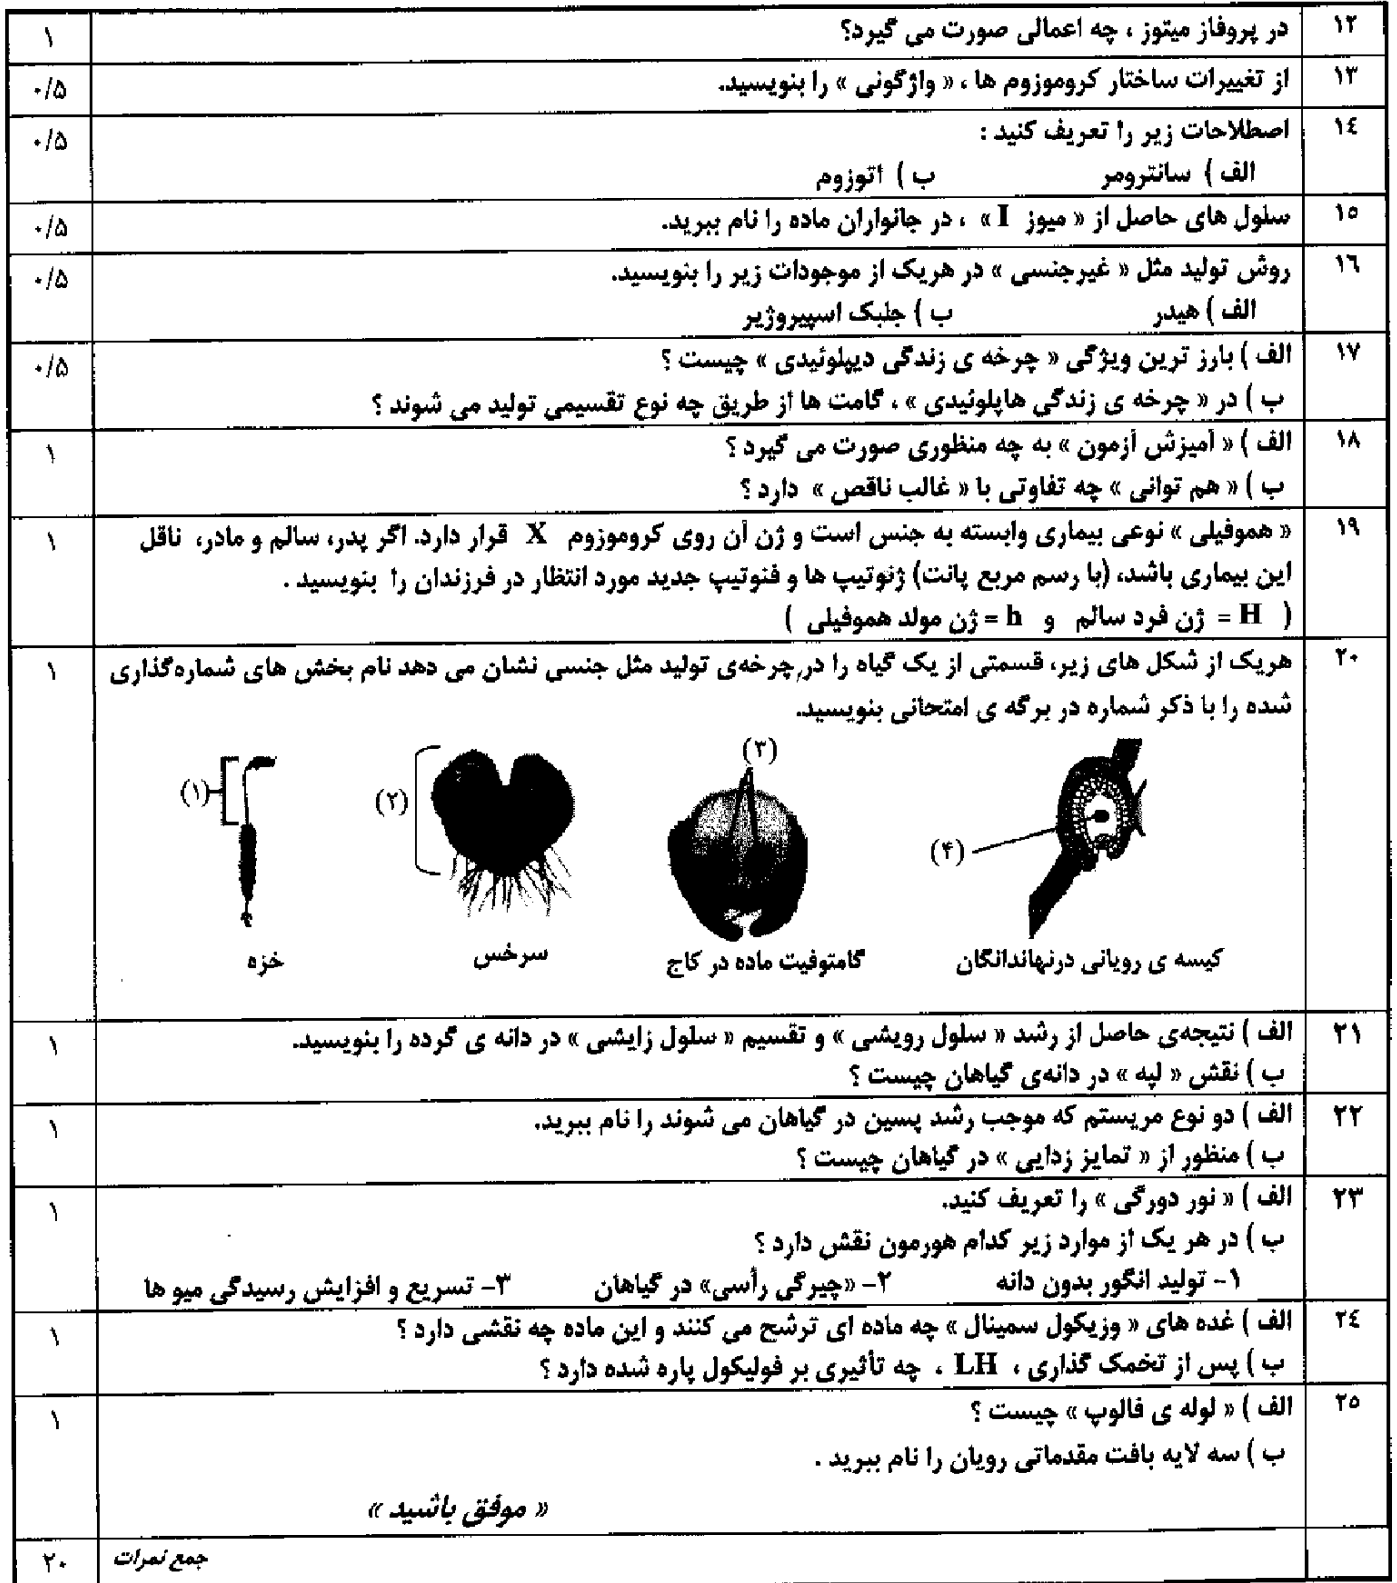 ۱۲ در پروفاز میتوز ، چه اعمالی صورت می گیرد؟ ۱
۱۳ از تغییرات ساختار کروموزوم ها ، « واژگونی » را بنویسید. ۰/۵
۱۴ اصطلاحات زیر را تعریف کنید : ۰/۵
الف ) سانترومر ب ) اتوزوم
۱۵ سلول های حاصل از « میوز I » ، در جانواران ماده را نام ببرید. ۰/۵
۱۶ روش تولید مثل « غیرجنسی » در هریک از موجودات زیر را بنویسید. ۰/۵
الف ) هیدر ب ) جلبک اسپیروژیر
۱۷ الف ) بارز ترین ویژگی « چرخه ی زندگی دیپلوئیدی » چیست ؟ ۰/۵
ب ) در « چرخه ی زندگی هاپلوئیدی » ، گامت ها از طریق چه نوع تقسیمی تولید می شوند ؟
۱۸ الف ) « آمیزش آزمون » به چه منظوری صورت می گیرد ؟ ۱
ب ) « هم توانی » چه تفاوتی با « غالب ناقص » دارد ؟
۱۹ « هموفیلی » نوعی بیماری وابسته به جنس است و ژن آن روی کروموزوم X قرار دارد. اگر پدر، سالم و مادر، ناقل ۱
این بیماری باشد، (با رسم مربع پانت) ژنوتیپ ها و فنوتیپ جدید مورد انتظار در فرزندان را بنویسید .
( H = ژن فرد سالم و h = ژن مولد هموفیلی )
۲۰ هریک از شکل های زیر، قسمتی از یک گیاه را در چرخه‌ی تولید مثل جنسی نشان می دهد نام بخش های شماره‌گذاری ۱
شده را با ذکر شماره در برگه ی امتحانی بنویسید.
(۳)
(۱) (۲)
(۴)
کیسه ی رویانی درنهاندانگان گامتوفیت ماده در کاج سرخس خزه
۲۱ الف ) نتیجه‌ی حاصل از رشد « سلول رویشی » و تقسیم « سلول زایشی » در دانه ی گرده را بنویسید. ۱
ب ) نقش « لپه » در دانه‌ی گیاهان چیست ؟
۲۲ الف ) دو نوع مریستم که موجب رشد پسین در گیاهان می شوند را نام ببرید. ۱
ب ) منظور از « تمایز زدایی » در گیاهان چیست ؟
۲۳ الف ) « نور دورگی » را تعریف کنید. ۱
ب ) در هر یک از موارد زیر کدام هورمون نقش دارد ؟
۱- تولید انگور بدون دانه ۲- «چیرگی رأسی» در گیاهان ۳- تسریع و افزایش رسیدگی میو ها
۲۴ الف ) غده های « وزیکول سمینال » چه ماده ای ترشح می کنند و این ماده چه نقشی دارد ؟ ۱
ب ) پس از تخمک گذاری ، LH ، چه تأثیری بر فولیکول پاره شده دارد ؟
۲۵ الف ) « لوله ی فالوپ » چیست ؟ ۱
ب ) سه لایه بافت مقدماتی رویان را نام ببرید .
« موفق باشید »
جمع نمرات ۲۰